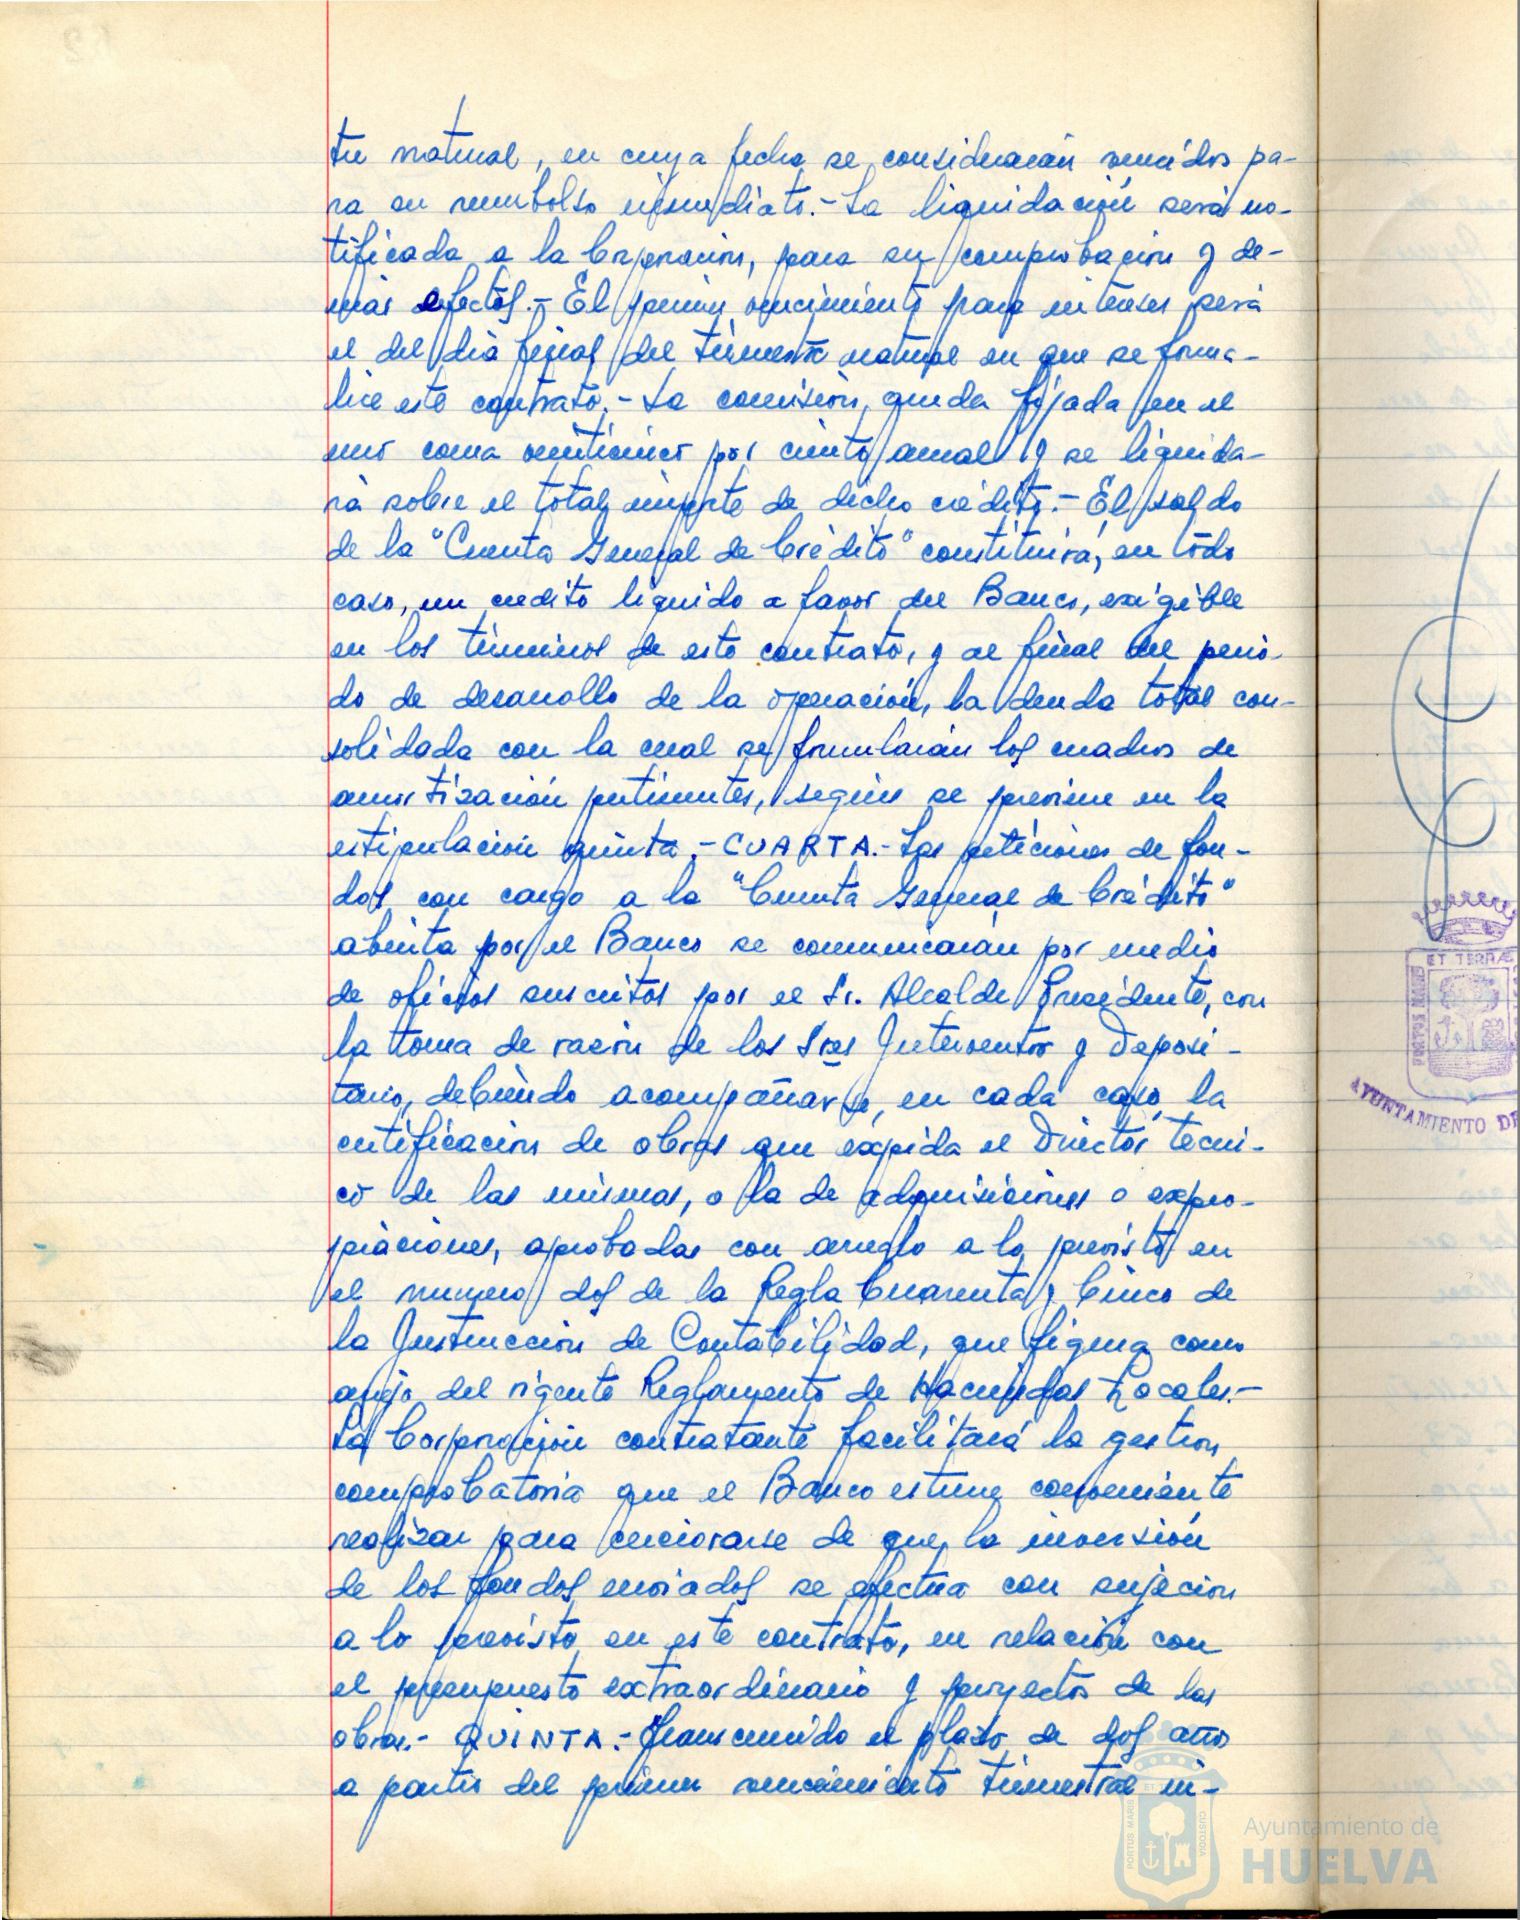 tre natural, en cuya fecha se considerarán vencidos pa-
ra su reembolso inmediato.- La liquidación será no-
tificada a la Corporación, para su comprobación y de-
más efectos.- El primer vencimiento para intereses será
el del día final del trimestre natural en que se forma-
lice este contrato.- La comisión, queda fijada en el
uno coma veinticinco por ciento anual y se liquida-
rá sobre el total importe de dicho crédito.- El saldo
de la "Cuenta General de Crédito" constituirá, en todo
caso, un credito liquido a favor del Banco, exigible
en los términos de este contrato, y al final del perio-
do de desarrollo de la operación, la deuda total con-
solidada con la cual se formularán los cuadros de
amortización pertinentes, según se previene en la
estipulación quinta.- CUARTA.- Las peticiones de fon-
dos con cargo a la "Cuenta General de Crédito"
abierta por el Banco se comunicarán por medio
de oficios suscritos por el Sr. Alcalde Presidente, con
la toma de razón de los Sres Interventor y Deposi-
tario, debiendo acompañarse, en cada caso, la
certificación de obras que expida el Director técni-
co de las mismas, o la de adquisiciones o expro-
piaciones, aprobadas con arreglo a lo previsto en
el numero dos de la Regla Cuarenta y Cinco de
la Instrucción de Contabilidad, que figura como
anejo del vigente Reglamento de Haciendas Locales.-
La Corporación contratante facilitará la gestion
comprobatoria que el Banco estime conveniente
realizar para cerciorarse de que la inversión
de los fondos enviados se efectua con sujeción
a lo previsto en este contrato, en relación con
el presupuesto extraordinario y proyectos de las
obras.- QUINTA.- Transcurrido el plazo de dos años
a partir del primer vencimiento trimestral in-
ET TERRAE
PORTUS MARIS
AYUNTAMIENTO DE
PORTUS MARIS
CUSTODIA
Ayuntamiento de
HUELVA